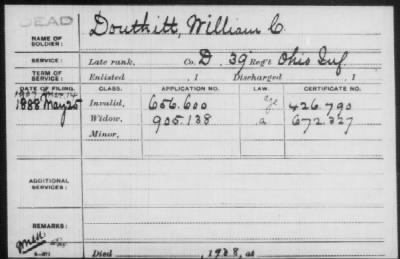 DEAD
NAME OF SOLDIER: Douthitt, William C.
SERVICE: Late rank, Co. D. 39 Reg't Ohio Inf.
TERM OF SERVICE: Enlisted , 1 Discharged , 1
DATE OF FILING. CLASS. APPLICATION NO. LAW. CERTIFICATE NO.
1888 May 25 Invalid, 656.600 age 426.790
Widow, 905.138 a 672.327
Minor,
ADDITIONAL SERVICES:
REMARKS:
Died , 1928, at